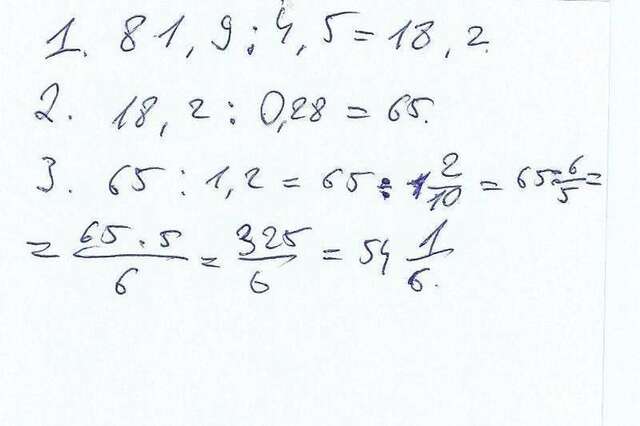 1. 81,9:4,5=18,2.
2. 18,2:0,28=65.
3. 65:1,2=65:1 2/10=65:6/5=
=65·5/6=325/6=54 1/6.